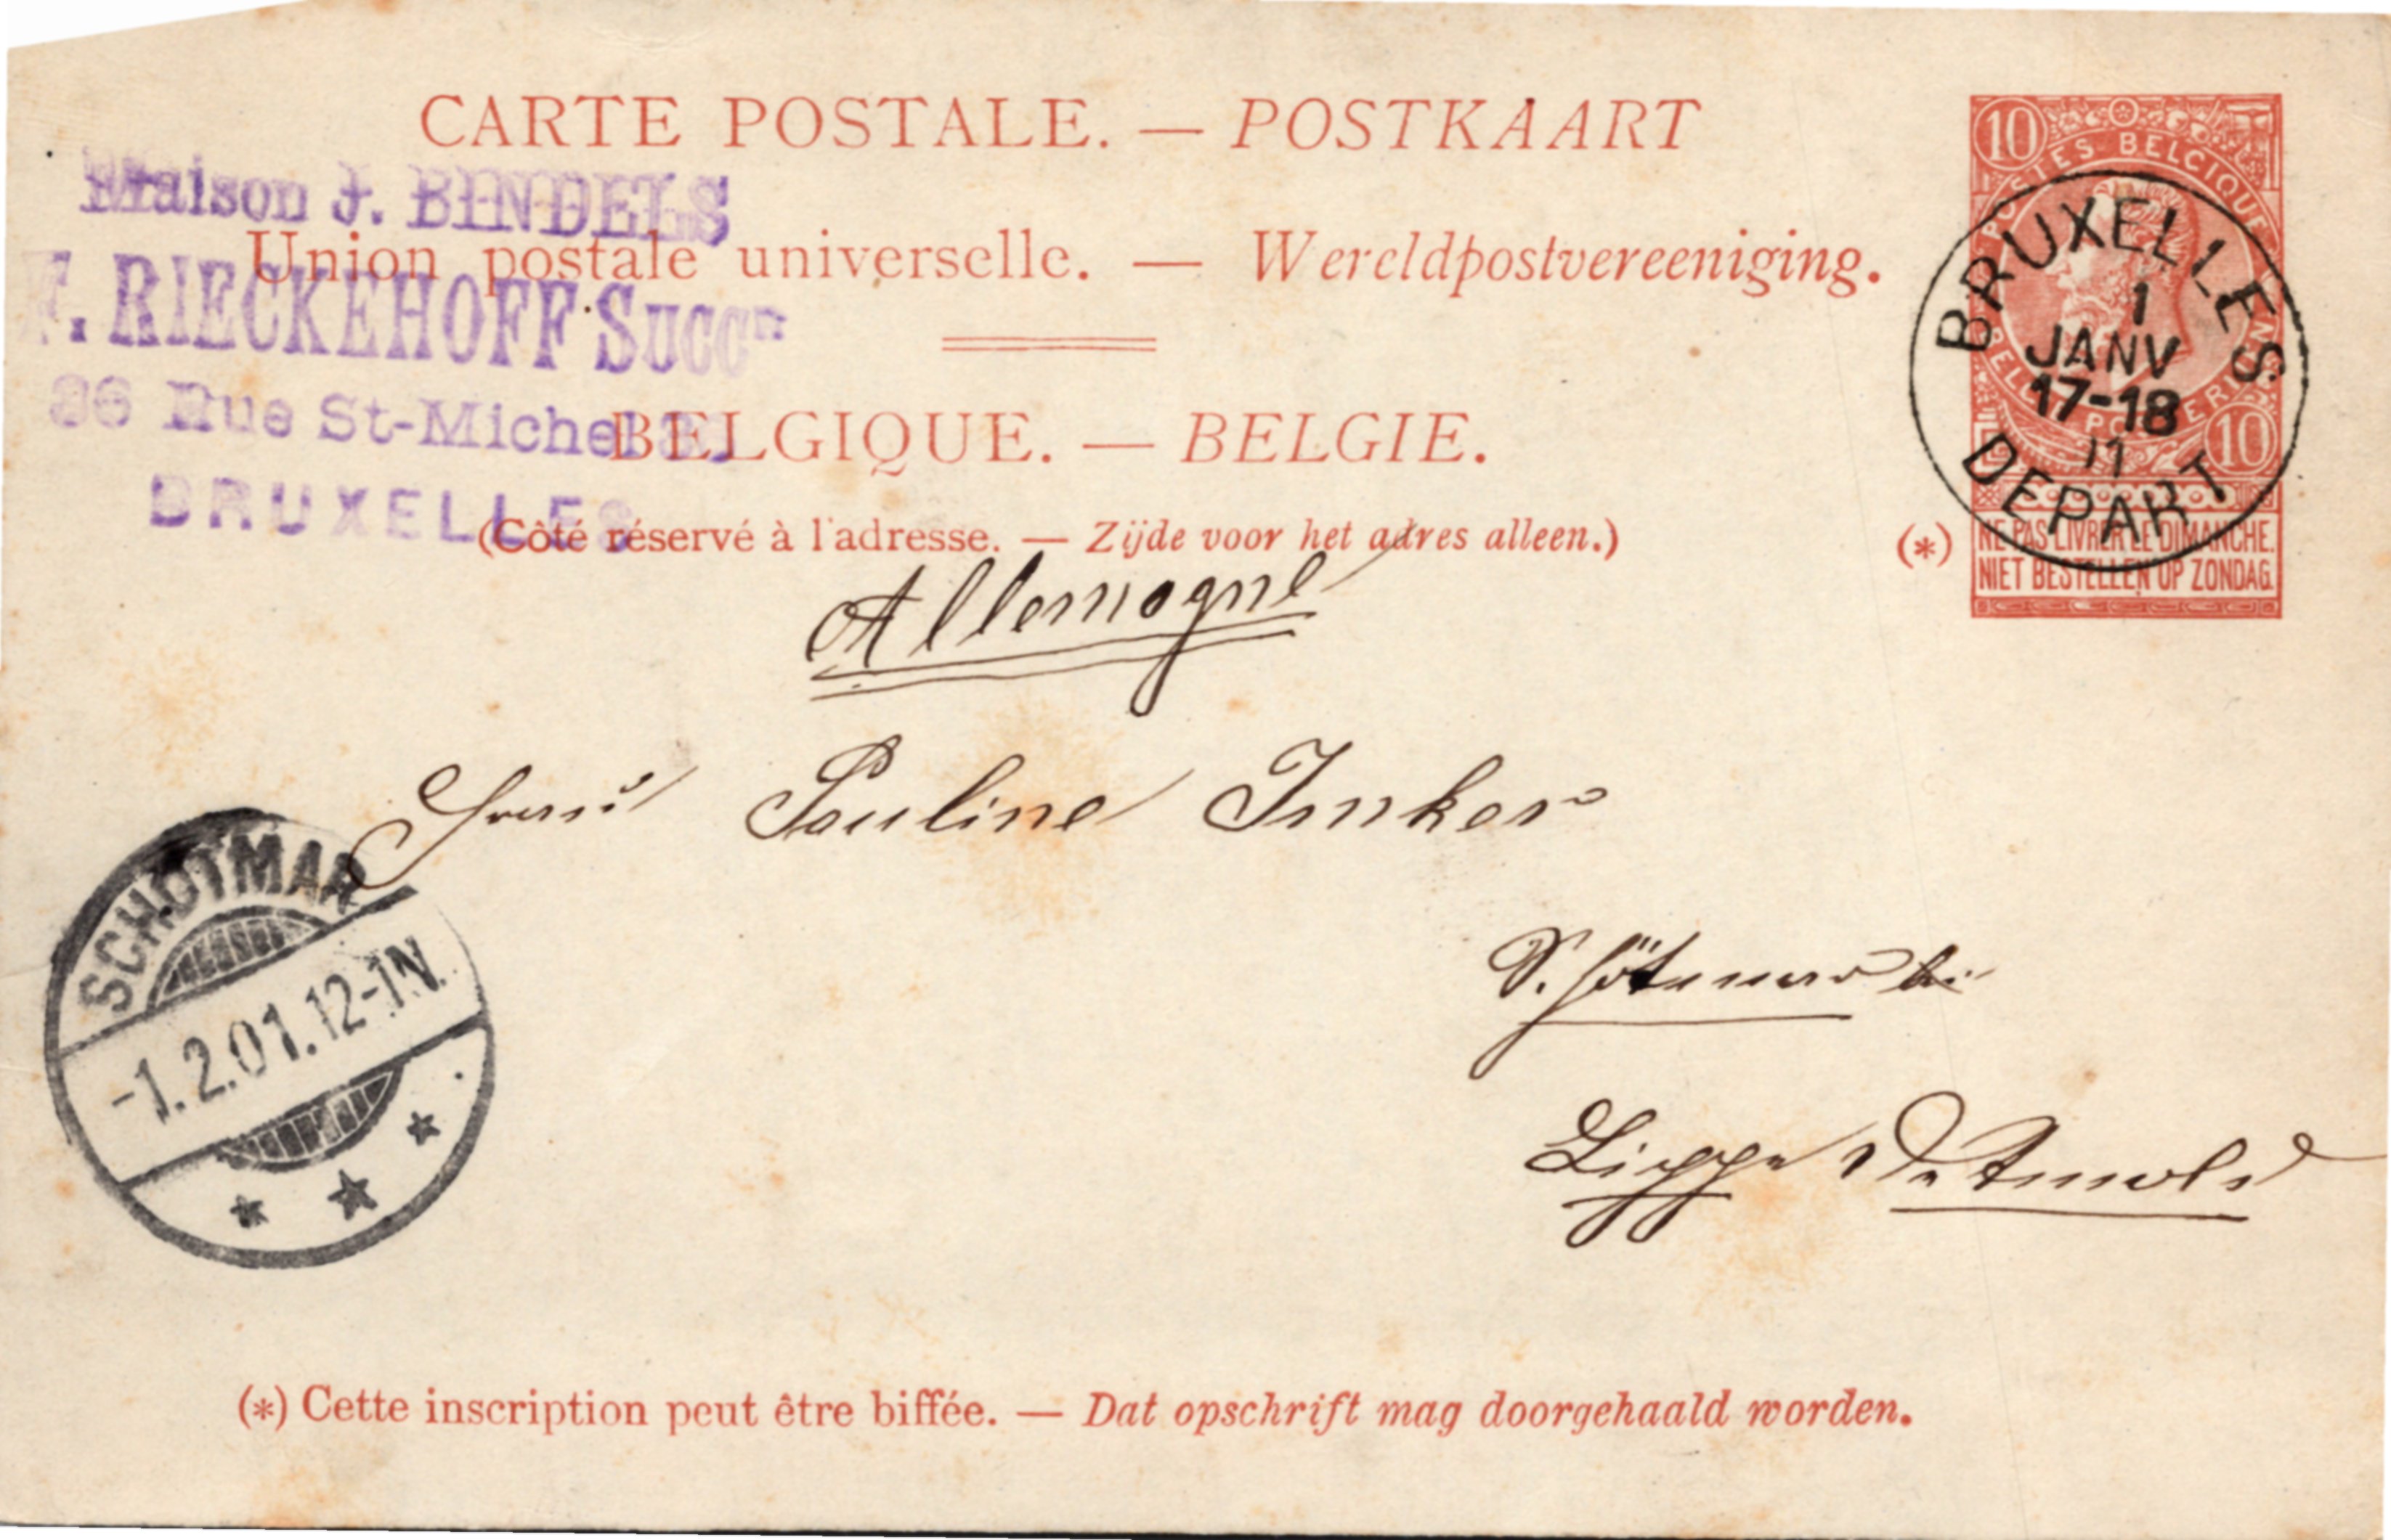 CARTE POSTALE. — POSTKAART
Maison J. BINDELS
Union postale universelle. — Wereldpostvereeniging.
F. RIECKEHOFF Succr
BELGIQUE. — BELGIE.
Rue St-Michel
BRUXELLES
(Côté réservé à l'adresse. — Zijde voor het adres alleen.)
10
POSTES BELGIQUE
BELGIË POSTERIJEN
10
(*) NE PAS LIVRER LE DIMANCHE.
NIET BESTELLEN OP ZONDAG.
BRUXELLES
1
JANV
17-18
DEPART
Allemagne
Frau Pauline Imker
Schötmar bei
Lippe Detmold
SCHÖTMAR
-1.2.01.12-1N.
(*) Cette inscription peut être biffée. — Dat opschrift mag doorgehaald worden.